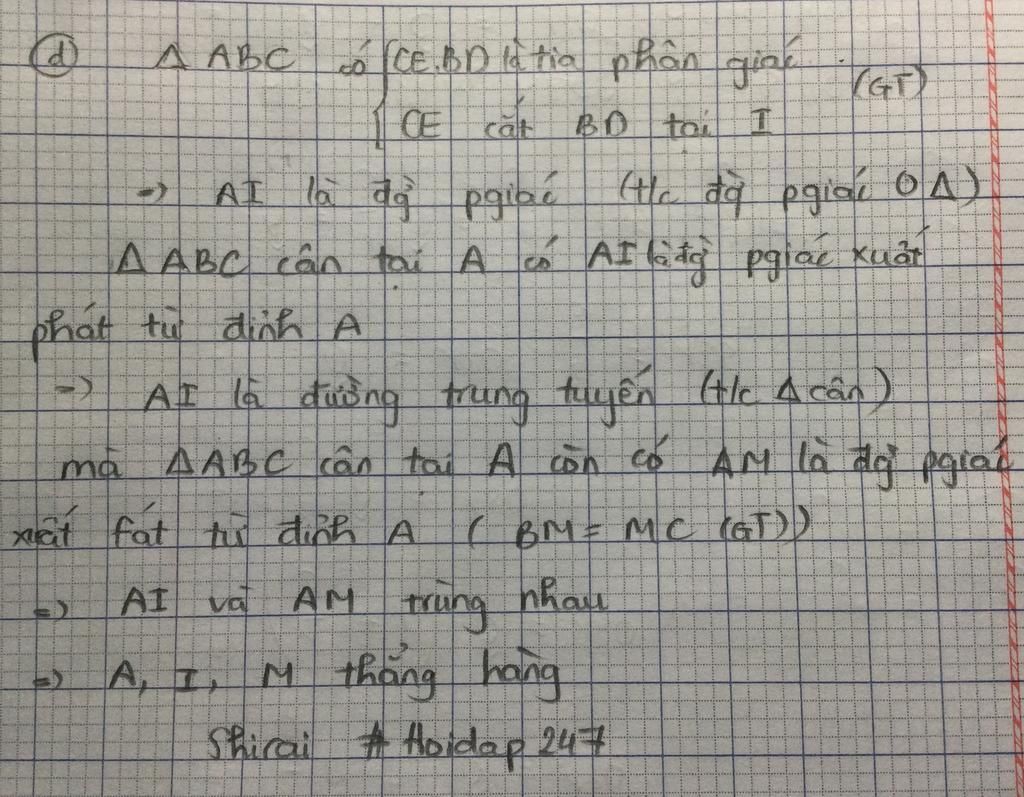 d) Δ ABC có { CE, BD là tia phân giác (GT)
{ CE cắt BD tại I
=> AI là đg pgiác (t/c đg pgiác Δ)
Δ ABC cân tại A có AI là đg pgiác xuất
phát từ đỉnh A
=> AI là đường trung tuyến (t/c Δ cân)
mà ΔABC cân tại A còn có AM là đg pgiác
xuất fát từ đỉnh A ( BM = MC (GT))
=> AI và AM trùng nhau
=> A, I, M thẳng hàng
Shirai # Hoidap 247